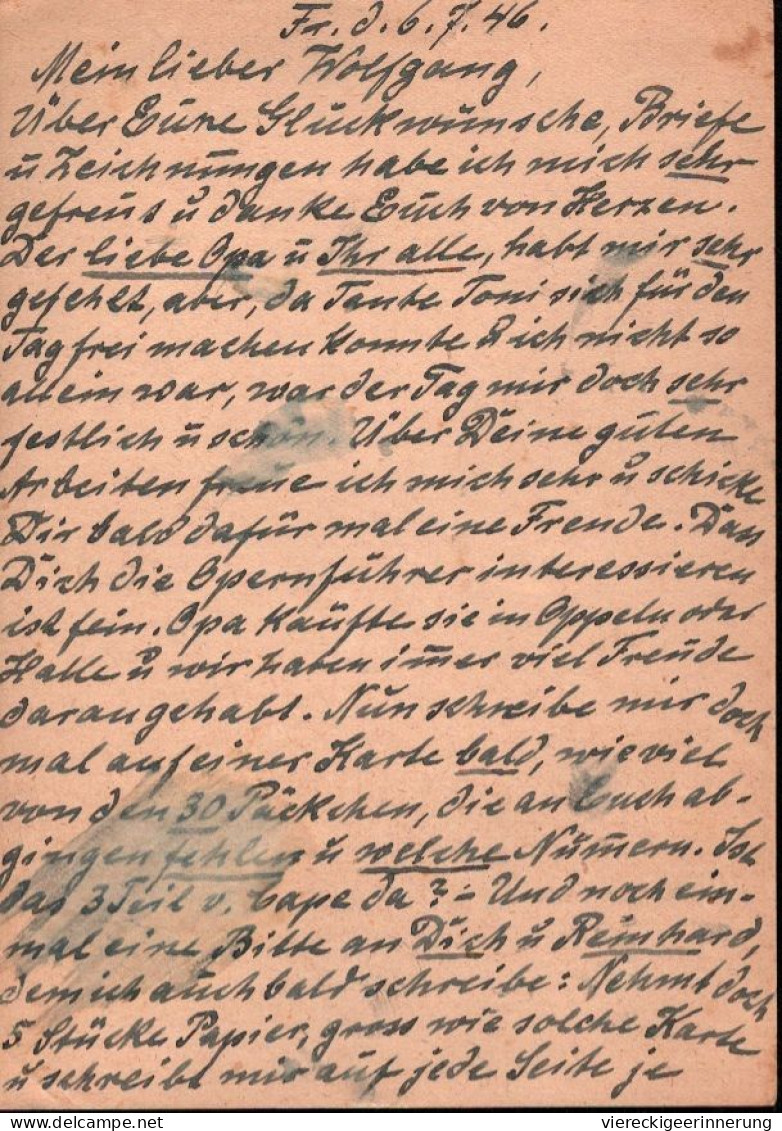 Fr. d. 6. 7. 46.
Mein lieber Wolfgang,
Über Eure Glückwünsche, Briefe
u Zeichnungen habe ich mich sehr
gefreut u danke Euch von Herzen.
Der liebe Opa u Ihr alle, habt mir sehr
gefehlt, aber, da Tante Toni sich für den
Tag frei machen konnte u ich nicht so
allein war, war der Tag mir doch sehr
festlich u schön. Über Deine guten
Arbeiten freue ich mich sehr u schicke
Dir bald dafür mal eine Freude. Dass
Dich die Opernführer interessieren
ist fein. Opa kaufte sie in Oppeln oder
Halle u wir haben im̅er viel Freude
daran gehabt. Nun schreibe mir doch
mal auf einer Karte bald, wie viel
von den 30 Päckchen, die an Euch ab-
gingen fehlen u welche Num̅ern. Ist
das 3 Teil v. Cape da? – Und noch ein-
mal eine Bitte an Dich u Reinhard,
dem ich auch bald schreibe: Nehmt doch
5 Stücke Papier, gross wie solche Karte
u schreibt mir auf jede Seite je
viereckigeerinnerung